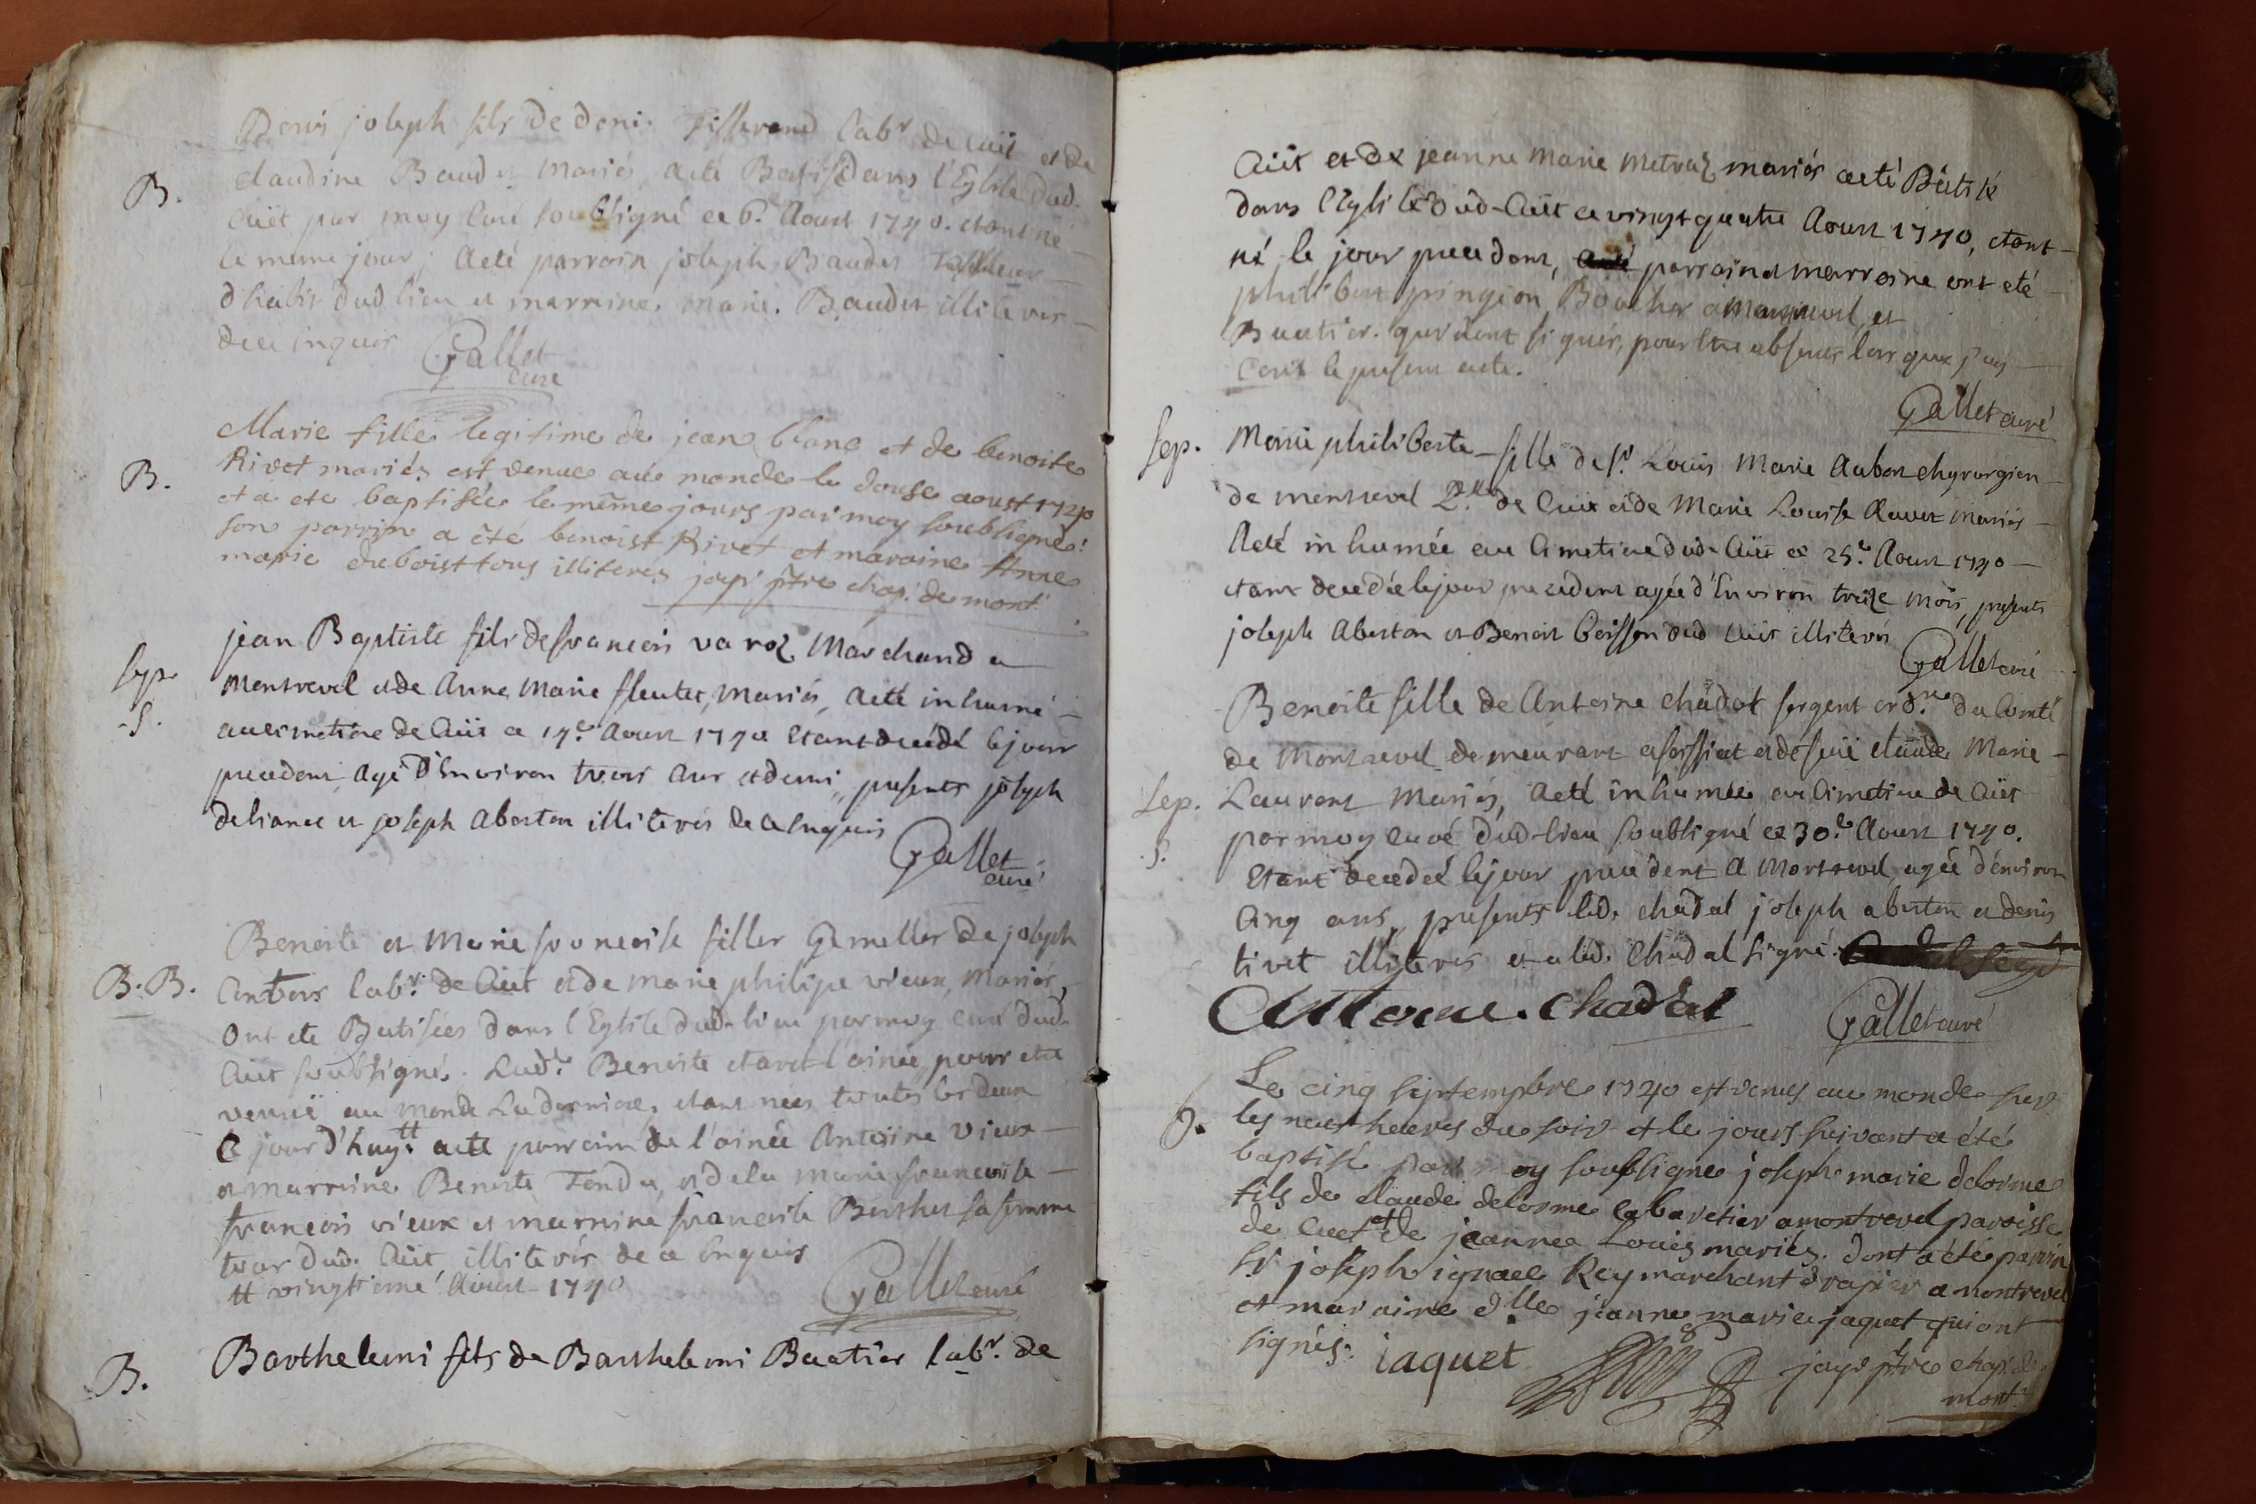 Denis joseph fils de deni. Tisserand lab.r de Cuët et de
B.
claudine Baudet Mariés, acté Batisé dans l'Eglise dud.
Cuët par moy Curé soubsigné ce 6.e Aoust 1740. etant né
le meme jour, acté parrain joseph Baudet Tailleur
d'habit dud lieu et marraine marie Baudet illiterés
de ce inquis
Gallet
curé
Marie fille legitime de jean blanc et de benoite
B.
Rivet mariéz est venue au monde le douse aoust 1740
et a ete baptisée le même jours par moy soubsigné.
son parrin a été benoist Rivet et maraine Anne
marie duboist tous illiterez jayr p̃tre chap. de mont
jean Baptiste fils de francois varoz Marchand a
Sep.
Montrevel et de Anne Marie fleutet, Mariés, acté inhumé
.S.
au cimetière de Cuët ce 14.e Aoust 1740 etant decedé le jour
precedent, agé d'Environ trois ans et demi, presents joseph
deliance et joseph Aberton illiterés de ce Enquis
Gallet
curé
Benoite et Marie francoise filles Gemelles de joseph
B. B.
Contors lab.r de Cuët et de marie philipe vieux, Mariés,
ont ete Batisées dans l'Eglise dud. lieu par moy curé dud.
Cuët soubsigné. Lad.e Benoite etant l'ainée pour etre
venuë au Monde La derniere, etant nées toutes les deux
Ce jourd'huy tt acté parrain de l'ainée Antoine Vieux
et marraine Benoite Tendu, et de la marie francoise
francois vieux et marraine francoise Berthet sa femme
tous dud. Cuët, illiterés de ce Enquis
tt vingtieme Aoust 1740
Gallet curé
B.
Barthelemi fils de Barthelemi Buatier lab.r de
Cuët et de jeanne Marie Metraz mariés acté Batisé
dans l'Eglise dud. Cuët ce vingt quatre Aoust 1740, etant
né le jour precedent, parrain et marraine ont eté
philibert pingeon Boucher a Montrevel et
Buatier. qui n'ont signés, pour etre absents lorsque j'ay
Ecrit le present acte.
Gallet curé
Sep.
Marie philiberte fille de S.r Louis Marie Aubon chyrurgien
de Montrevel de Cuët et de Marie Louise Ravet Mariés
Acté inhumée au Cimetiere dud. Cuët ce 25.e Aoust 1740
etant decedée le jour precedent agée d'Environ treize Mois, presents
joseph Aberton et Benoit boisson dud Cuët illiterés
Gallet curé
Benoite fille de Antoine Chadal sergent ord.re du Comté
de Montrevel demeurant a foissiat et de fuë claude Marie
Sep.
Laurent Mariés, acté inhumée au Cimetiere de Cuët
par moy curé dud. lieu soubsigné ce 30.e Aoust 1740.
.S.
Etant decedée le jour precedent a Montrevel, agée d'environ
Cinq ans, presents led. chadal joseph aberton et denis
tivet illiterés et a led. Chadal signé.
Antoine. Chadal
Gallet curé
Le cinq septembre 1740 est venus au monde sur
b.
les neuf heures du soir et le jours suivant a été
baptisé par moy soubsigné joseph marie delorme
fils de claude delorme cabaretier a montrevel paroisse
de cuet et de jeanne Louis mariéz. dont a été parrin
S.r joseph ignace Rey marchant drapier a montrevel
et maraine d.lle jeanne marie jaquet qui ont
signés.
iaquet
jayr p̃tre chap. de
mont.